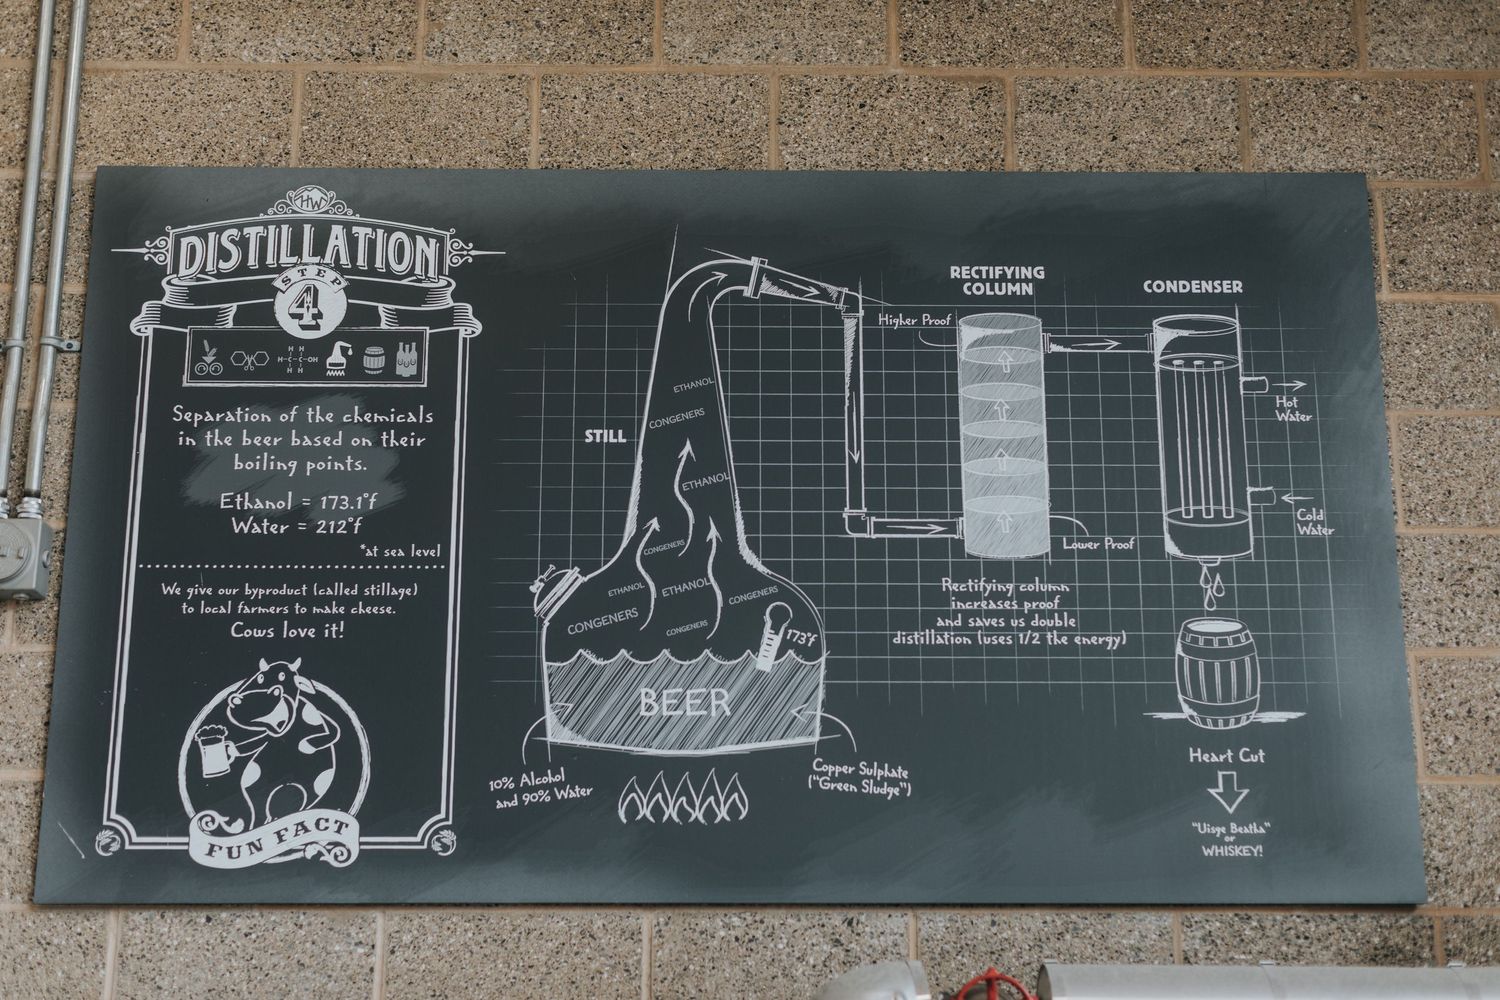 HW
DISTILLATION
STEP
4
H H
H-C-C-OH
H H
Separation of the chemicals
in the beer based on their
boiling points.
Ethanol = 173.1°f
Water = 212°f
*at sea level
We give our byproduct (called stillage)
to local farmers to make cheese.
Cows love it!
FUN FACT
STILL
ETHANOL
CONGENERS
ETHANOL
CONGENERS
ETHANOL
ETHANOL
CONGENERS
CONGENERS
CONGENERS
173°f
BEER
10% Alcohol
and 90% Water
Copper Sulphate
("Green Sludge")
RECTIFYING
COLUMN
Higher Proof
Lower Proof
Rectifying column
increases proof
and saves us double
distillation (uses 1/2 the energy)
CONDENSER
Hot
Water
Cold
Water
Heart Cut
"Uisge Beatha"
or
WHISKEY!